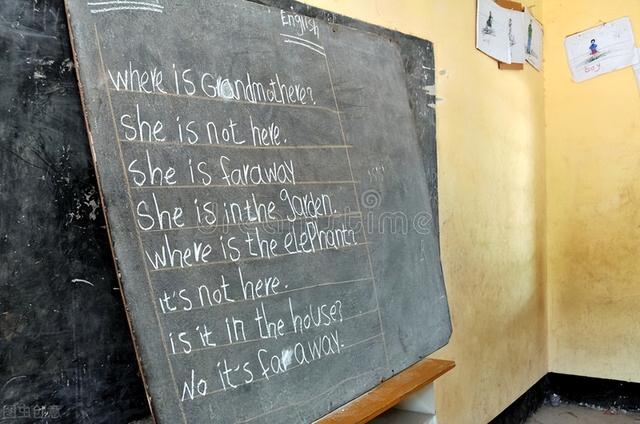 English
Where is Grandmothere?
She is not here.
She is faraway
She is in the garden.
where is the elephant?
it's not here.
is it in the house?
No it's far away.
boy
图虫创意